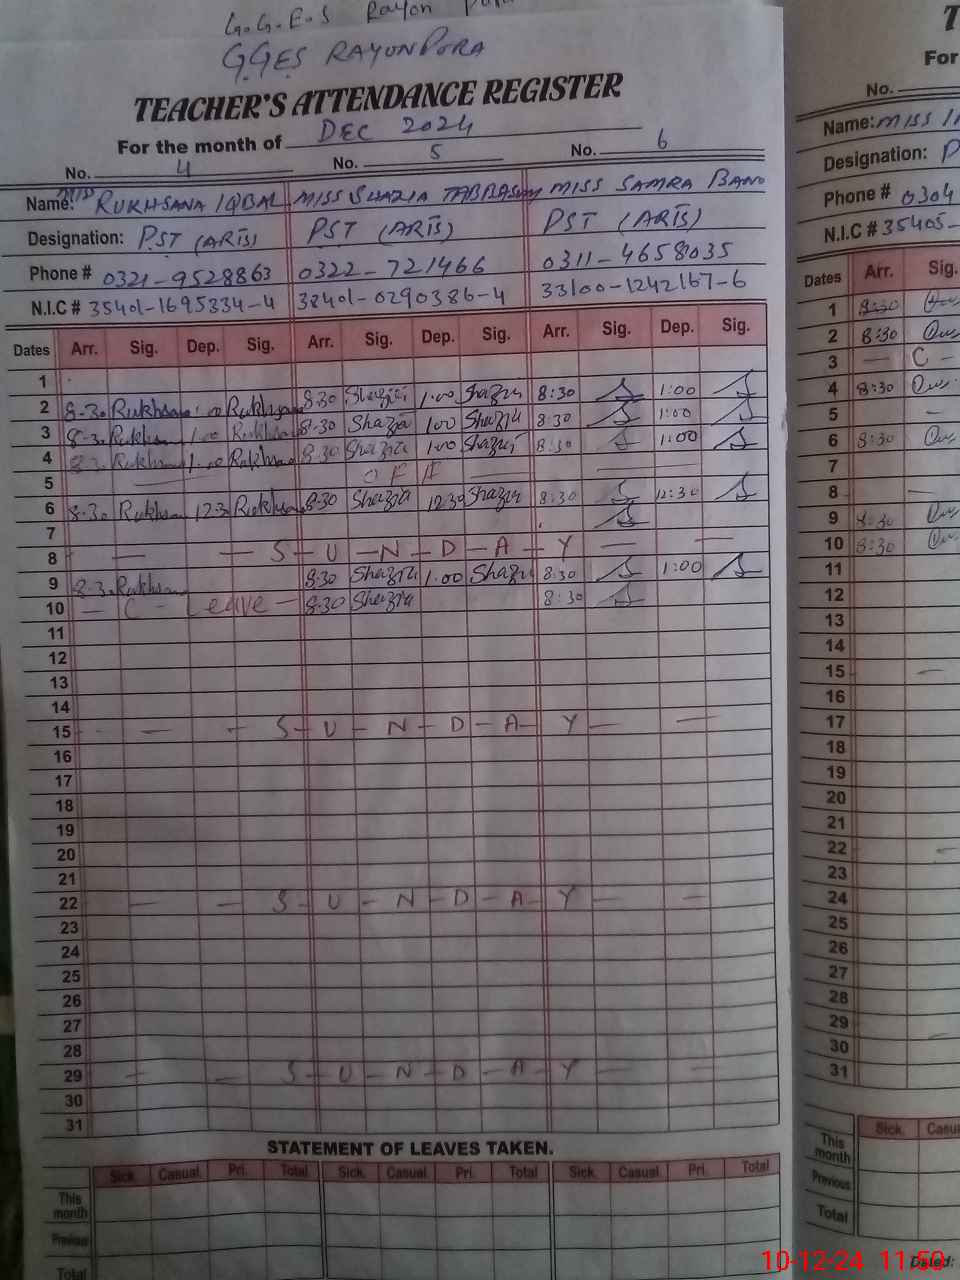 G.G.E.S Rayon
GGES RAYONPORA
TEACHER'S ATTENDANCE REGISTER
For the month of DEC 2024
No. 4 No. 5 No. 6
Name: Miss RUKHSANA IQBAL MISS SHAZIA TABBASUM MISS SAMRA BANO
Designation: PST (ARTS) PST (ARTS) PST (ARTS)
Phone # 0321-9528863 0322-721466 0311-4658035
N.I.C # 35401-1695334-4 38401-0290386-4 33100-1242167-6
Dates Arr. Sig. Dep. Sig. Arr. Sig. Dep. Sig. Arr. Sig. Dep. Sig.
1
2 8-30 Rukhsana 1:00 Rukhsana 8-30 Shazia 1.00 Shazia 8:30 1:00
3 8-30 Rukhsana 1.00 Rukhsana 8-30 Shazia 1.00 Shazia 8:30 1:00
4 Rukhsana 1.00 Rukhsana 8-30 Shazia 1.00 Shazia 8:30 1:00
5 OFF
6 8-30 Rukhsana 12.3 Rukhsana 8-30 Shazia 12.30 Shazia 8:30 12:30
7
8 — — S-U-N-D-A-Y — —
9 8-3. Rukhsana 8-30 Shazia 1.00 Shazia 8:30 1:00
10 — C - Leave — 8-30 Shazia 8:30
11
12
13
14
15 — — S-U-N-D-A-Y — —
16
17
18
19
20
21
22 — — S-U-N-D-A-Y — —
23
24
25
26
27
28
29 — — S-U-N-D-A-Y — —
30
31
STATEMENT OF LEAVES TAKEN.
Sick. Casual. Pri. Total Sick. Casual. Pri. Total Sick. Casual Pri. Total
This month
Previous
Total
For
No.
Name: MISS
Designation: P
Phone # 0304
N.I.C # 35405-
Dates Arr. Sig.
1 8:30
2 8:30
3 — C -
4 8:30
5 —
6 8:30
7
8 —
9 8:30
10 8:30
11
12
13
14
15 —
16
17
18
19
20
21
22 —
23
24
25
26
27
28
29 —
30
31
Sick. Casu
This month
Previous
Total
Dated:
10-12-24 11:50